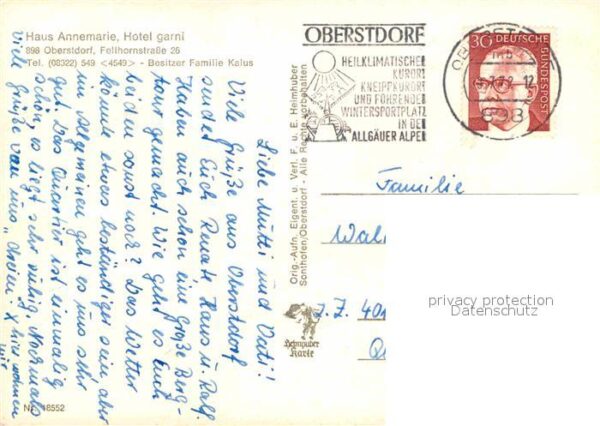 Haus Annemarie, Hotel garni
898 Oberstdorf, Fellhornstraße 26
Tel. (08322) 549 <4549> - Besitzer Familie Kalus
OBERSTDORF
HEILKLIMATISCHER
KURORT
KNEIPPKURORT
UND FÜHRENDER
WINTERSPORTPLATZ
IN DEN
ALLGÄUER ALPEN
30
DEUTSCHE
BUNDESPOST
898
Liebe Mutti und Vati!
Viele Grüße aus Oberstdorf
sendet Euch Renate, Klaus u. Ralf.
Haben auch schon eine große Berg-
tour gemacht. Wie geht es Euch
beide sonst noch? Das Wetter
könnte etwas beständiger sein aber
im Allgemeinen geht es uns sehr
gut. Das Quartier ist einmalig
schön, es liegt sehr ruhig. Nochmals
viele Grüße von uns "dreien". X hier wohnen
wir
Orig.-Aufn. Eigent. u. Verl. F. u. E. Heimhuber
Sonthofen/Oberstdorf - Alle Rechte vorbehalten
Heimhuber
Karte
Familie
Wal
Z.Z. 401
privacy protection
Datenschutz
Nr. 18552